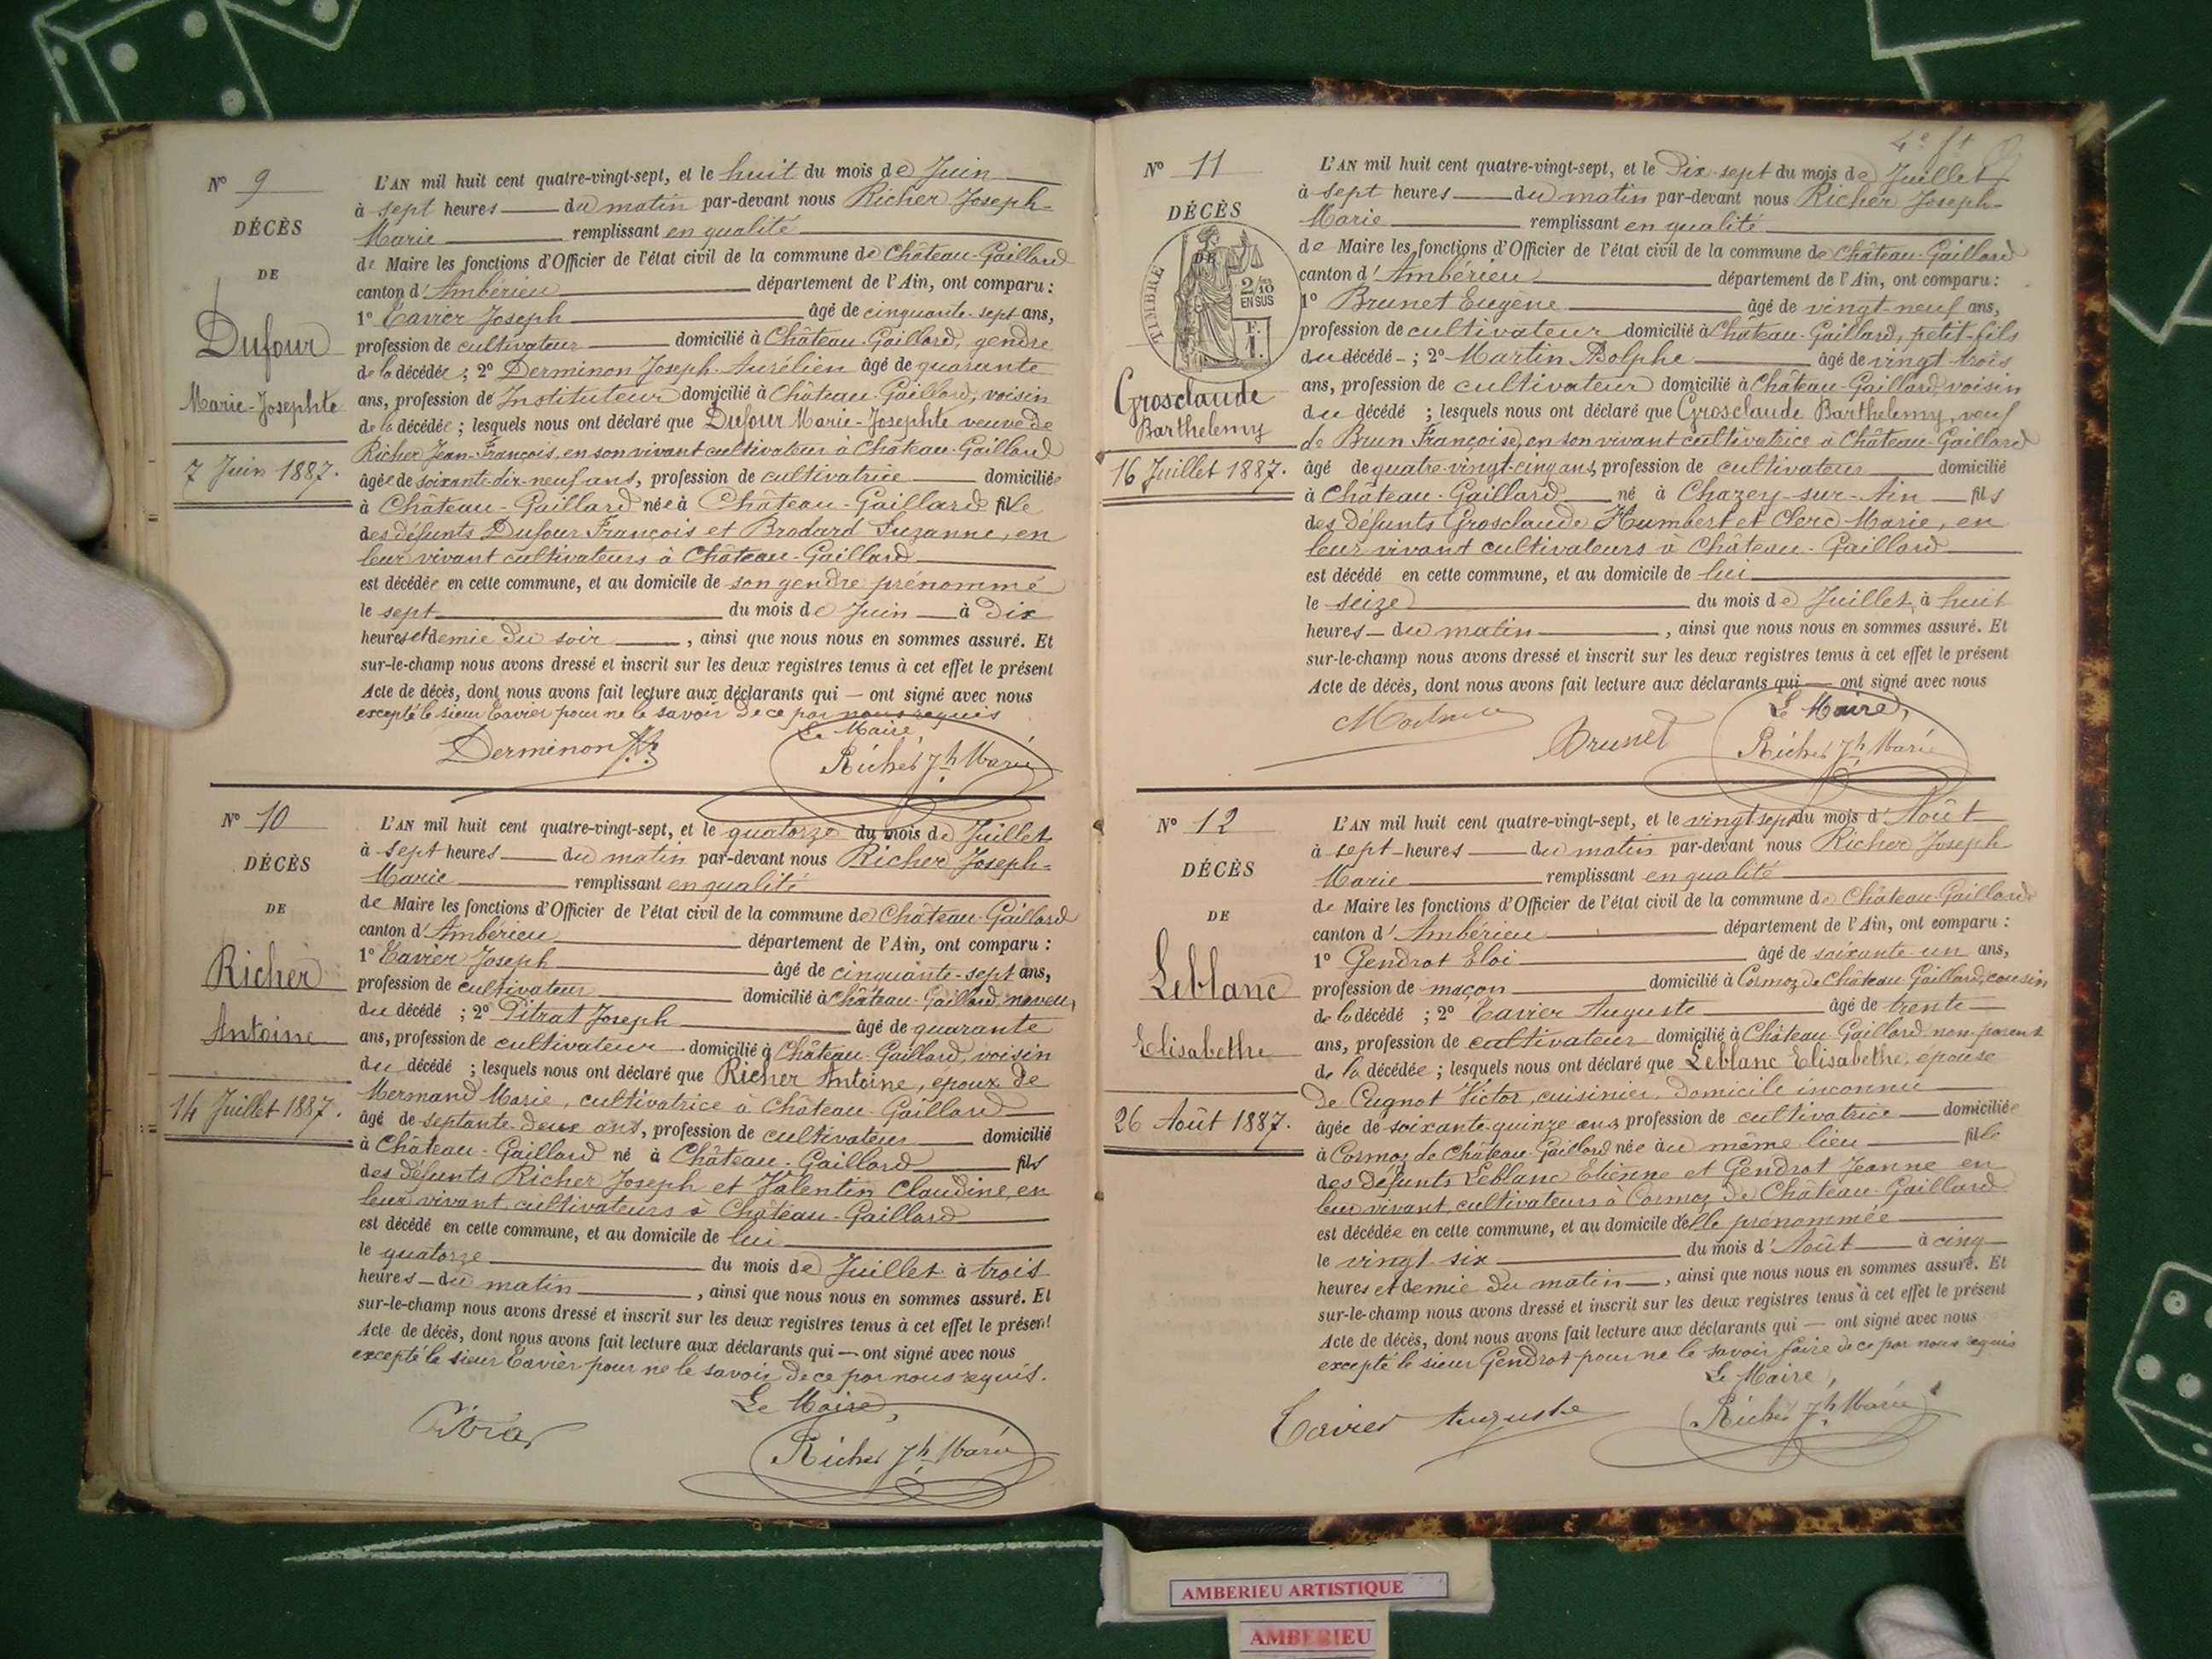 Nº 9
DÉCÈS
DE
Dufour
Marie-Josephte
7 Juin 1887.
L'AN mil huit cent quatre-vingt-sept, et le huit du mois de Juin
à sept heures du matin par-devant nous Richer Joseph-
Marie remplissant en qualité
de Maire les fonctions d'Officier de l'état civil de la commune de Château-Gaillard
canton d'Ambérieu département de l'Ain, ont comparu :
1º Tavier Joseph âgé de cinquante-sept ans,
profession de cultivateur domicilié à Château-Gaillard, gendre
de la décédée ; 2º Derminon Joseph-Aurélien âgé de quarante
ans, profession de Instituteur domicilié à Château-Gaillard, voisin
de la décédée ; lesquels nous ont déclaré que Dufour Marie-Josephte veuve de
Richer Jean-François, en son vivant cultivateur à Château-Gaillard
âgée de soixante-dix-neuf ans, profession de cultivatrice domiciliée
à Château-Gaillard née à Château-Gaillard fille
des défunts Dufour François et Brodard Suzanne, en
leur vivant cultivateurs à Château-Gaillard
est décédée en cette commune, et au domicile de son gendre prénommé
le sept du mois de Juin à dix
heures et demie du soir, ainsi que nous nous en sommes assuré. Et
sur-le-champ nous avons dressé et inscrit sur les deux registres tenus à cet effet le présent
Acte de décès, dont nous avons fait lecture aux déclarants qui — ont signé avec nous
excepté le sieur Tavier pour ne le savoir de ce par nous requis
Le Maire,
Derminon
Richer Jh Marie
Nº 10
DÉCÈS
DE
Richer
Antoine
14 Juillet 1887.
L'AN mil huit cent quatre-vingt-sept, et le quatorze du mois de Juillet
à sept heures du matin par-devant nous Richer Joseph-
Marie remplissant en qualité
de Maire les fonctions d'Officier de l'état civil de la commune de Château-Gaillard
canton d'Ambérieu département de l'Ain, ont comparu :
1º Tavier Joseph âgé de cinquante-sept ans,
profession de cultivateur domicilié à Château-Gaillard, neveu,
du décédé ; 2º Pitrat Joseph âgé de quarante
ans, profession de cultivateur domicilié à Château-Gaillard, voisin
du décédé ; lesquels nous ont déclaré que Richer Antoine, époux de
Mermand Marie, cultivatrice à Château-Gaillard
âgé de septante-deux ans, profession de cultivateur domicilié
à Château-Gaillard né à Château-Gaillard fils
des défunts Richer Joseph et Jalentin Claudine, en
leur vivant, cultivateurs à Château-Gaillard
est décédé en cette commune, et au domicile de lui
le quatorze du mois de Juillet à trois
heures du matin, ainsi que nous nous en sommes assuré. Et
sur-le-champ nous avons dressé et inscrit sur les deux registres tenus à cet effet le présent
Acte de décès, dont nous avons fait lecture aux déclarants qui — ont signé avec nous
excepté le sieur Tavier pour ne le savoir de ce par nous requis.
Le Maire,
Richer Jh Marie
4e ft
Nº 11
DÉCÈS
DE
TIMBRE
2/10
EN SUS
Grosclaude
Barthelemy
16 Juillet 1887.
L'AN mil huit cent quatre-vingt-sept, et le Dix-sept du mois de Juillet
à sept heures du matin par-devant nous Richer Joseph-
Marie remplissant en qualité
de Maire les fonctions d'Officier de l'état civil de la commune de Château-Gaillard
canton d'Ambérieu département de l'Ain, ont comparu :
1º Brunet Eugène âgé de vingt-neuf ans,
profession de cultivateur domicilié à Château-Gaillard, petit-fils
du décédé ; 2º Martin Adolphe âgé de vingt-trois
ans, profession de cultivateur domicilié à Château-Gaillard, voisin
du décédé ; lesquels nous ont déclaré que Grosclaude Barthelemy, veuf
de Brun Françoise, en son vivant cultivatrice à Château-Gaillard
âgé de quatre-vingt-cinq ans, profession de cultivateur domicilié
à Château-Gaillard né à Chazey-sur-Ain fils
des défunts Grosclaude Humbert et Clerc Marie, en
leur vivant cultivateurs à Château-Gaillard
est décédé en cette commune, et au domicile de lui
le seize du mois de Juillet, à huit
heures du matin, ainsi que nous nous en sommes assuré. Et
sur-le-champ nous avons dressé et inscrit sur les deux registres tenus à cet effet le présent
Acte de décès, dont nous avons fait lecture aux déclarants qui — ont signé avec nous
Le Maire,
Martin
Brunet
Richer Jh Marie
Nº 12
DÉCÈS
DE
Leblanc
Elisabethe
26 Août 1887.
L'AN mil huit cent quatre-vingt-sept, et le vingt sept du mois d'Août
à sept heures du matin par-devant nous Richer Joseph
Marie remplissant en qualité
de Maire les fonctions d'Officier de l'état civil de la commune de Château-Gaillard
canton d'Ambérieu département de l'Ain, ont comparu :
1º Gendrot Eloi âgé de soixante un ans,
profession de maçon domicilié à Cormoz de Château Gaillard, cousin
de la décédé ; 2º Tavier Auguste âgé de trente
ans, profession de cultivateur domicilié à Château-Gaillard non-parent
de la décédée ; lesquels nous ont déclaré que Leblanc Elisabethe, épouse
de Cugnot Victor, cuisinier, domicile inconnu
âgée de soixante-quinze ans profession de cultivatrice domiciliée
à Cormoz de Château-Gaillard née au même lieu fille
des défunts Leblanc Etienne et Gendrot Jeanne en
leur vivant, cultivateurs à Cormoz de Château-Gaillard
est décédée en cette commune, et au domicile d'elle prénommée
le vingt-six du mois d'Août à cinq
heures et demie du matin, ainsi que nous nous en sommes assuré. Et
sur-le-champ nous avons dressé et inscrit sur les deux registres tenus à cet effet le présent
Acte de décès, dont nous avons fait lecture aux déclarants qui — ont signé avec nous
excepté le sieur Gendrot pour ne le savoir faire de ce par nous requis
Le Maire,
Tavier Auguste
Richer Jh Marie
AMBERIEU ARTISTIQUE
AMBERIEU